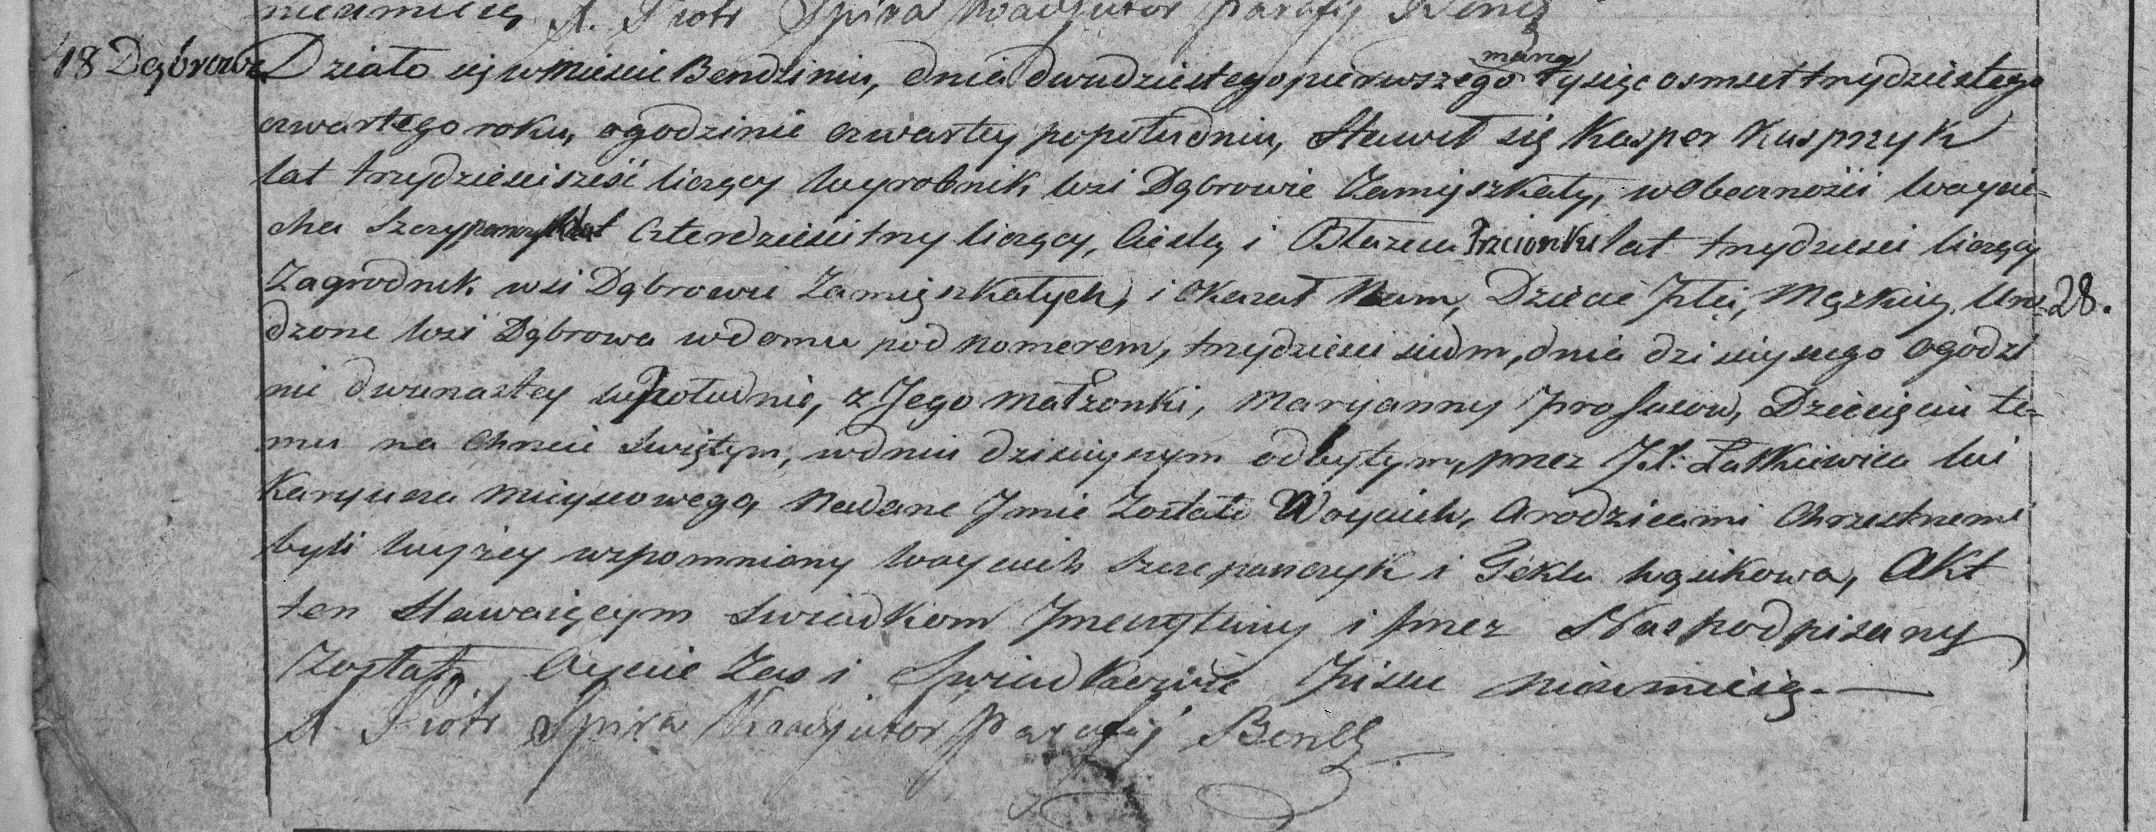 nieumieią X. Piotr Spira Koadjutor Parafij Bendz
18 Dąbrowa Działo się w Mieście Bendzinie, dnia dwudziestego pierwszego marca tysiąc osmset trzydziestego
czwartego roku, o godzinie czwartey popołudniu, Stawił się Kasper Kasprzyk
lat trzydzieści sześć liczący wyrobnik wsi Dąbrowie Zamięszkały, w obecności Woycie-
cha Szczypanczyk lat Czterdzieści trzy liczący, Cieslą i Błazeia Trzcionki lat trzydzieści liczący
Zagrodnik wsi Dąbrowie Zamięszkałych, i okazał Nam, Dziecie Płci, Męzkiey, Uro- 28.
dzone wsi Dąbrowa w domu pod Nomerem, trzydzieści siedm, dnia dzisieyszego o godzi
nie dwunastey w Południe, z Jego Małżonki, Maryanny Dziecięciu te-
mu na Chrzcie Swiętym, w dniu dzisieyszym odbytym, przez JX: Łatkiewicza Wi
Karyusza mieyscowego, Nadane Jmie Zostało Woyciech, a rodzicami Chrzestnemi
byli wyżey wzpomniony Woyciech Szczepanczyk i Tekla Akt
ten Stawaiącym Swiadkom Przeczytany i przez Nas podpisany
Został, Oyciec Zas i Swiadkowie Pisac nieumieią.
X. Piotr Spira Koadjutor Parafij Bendz